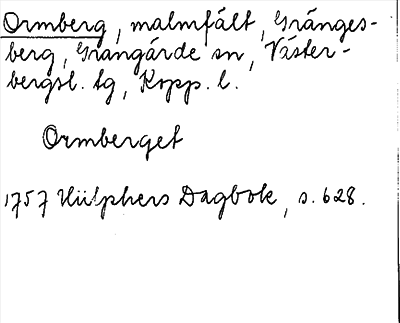 Ormberg, malmfält, Gränges-
berg, Grangärde sn, Väster-
bergsl. tg, Kopp. l.
Ormberget
1757 Hülphers Dagbok, s. 628.